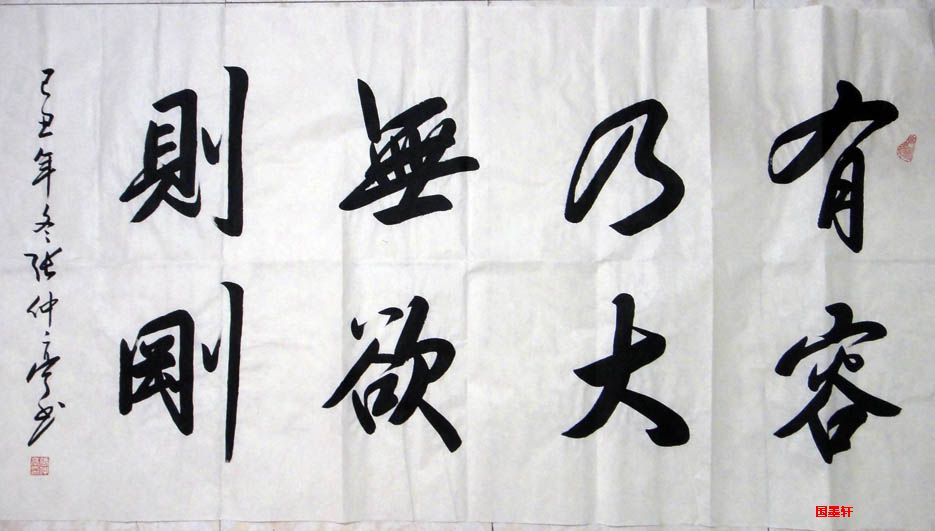 有容
乃大
無欲
則剛
己丑年冬張仲亭书
国墨轩